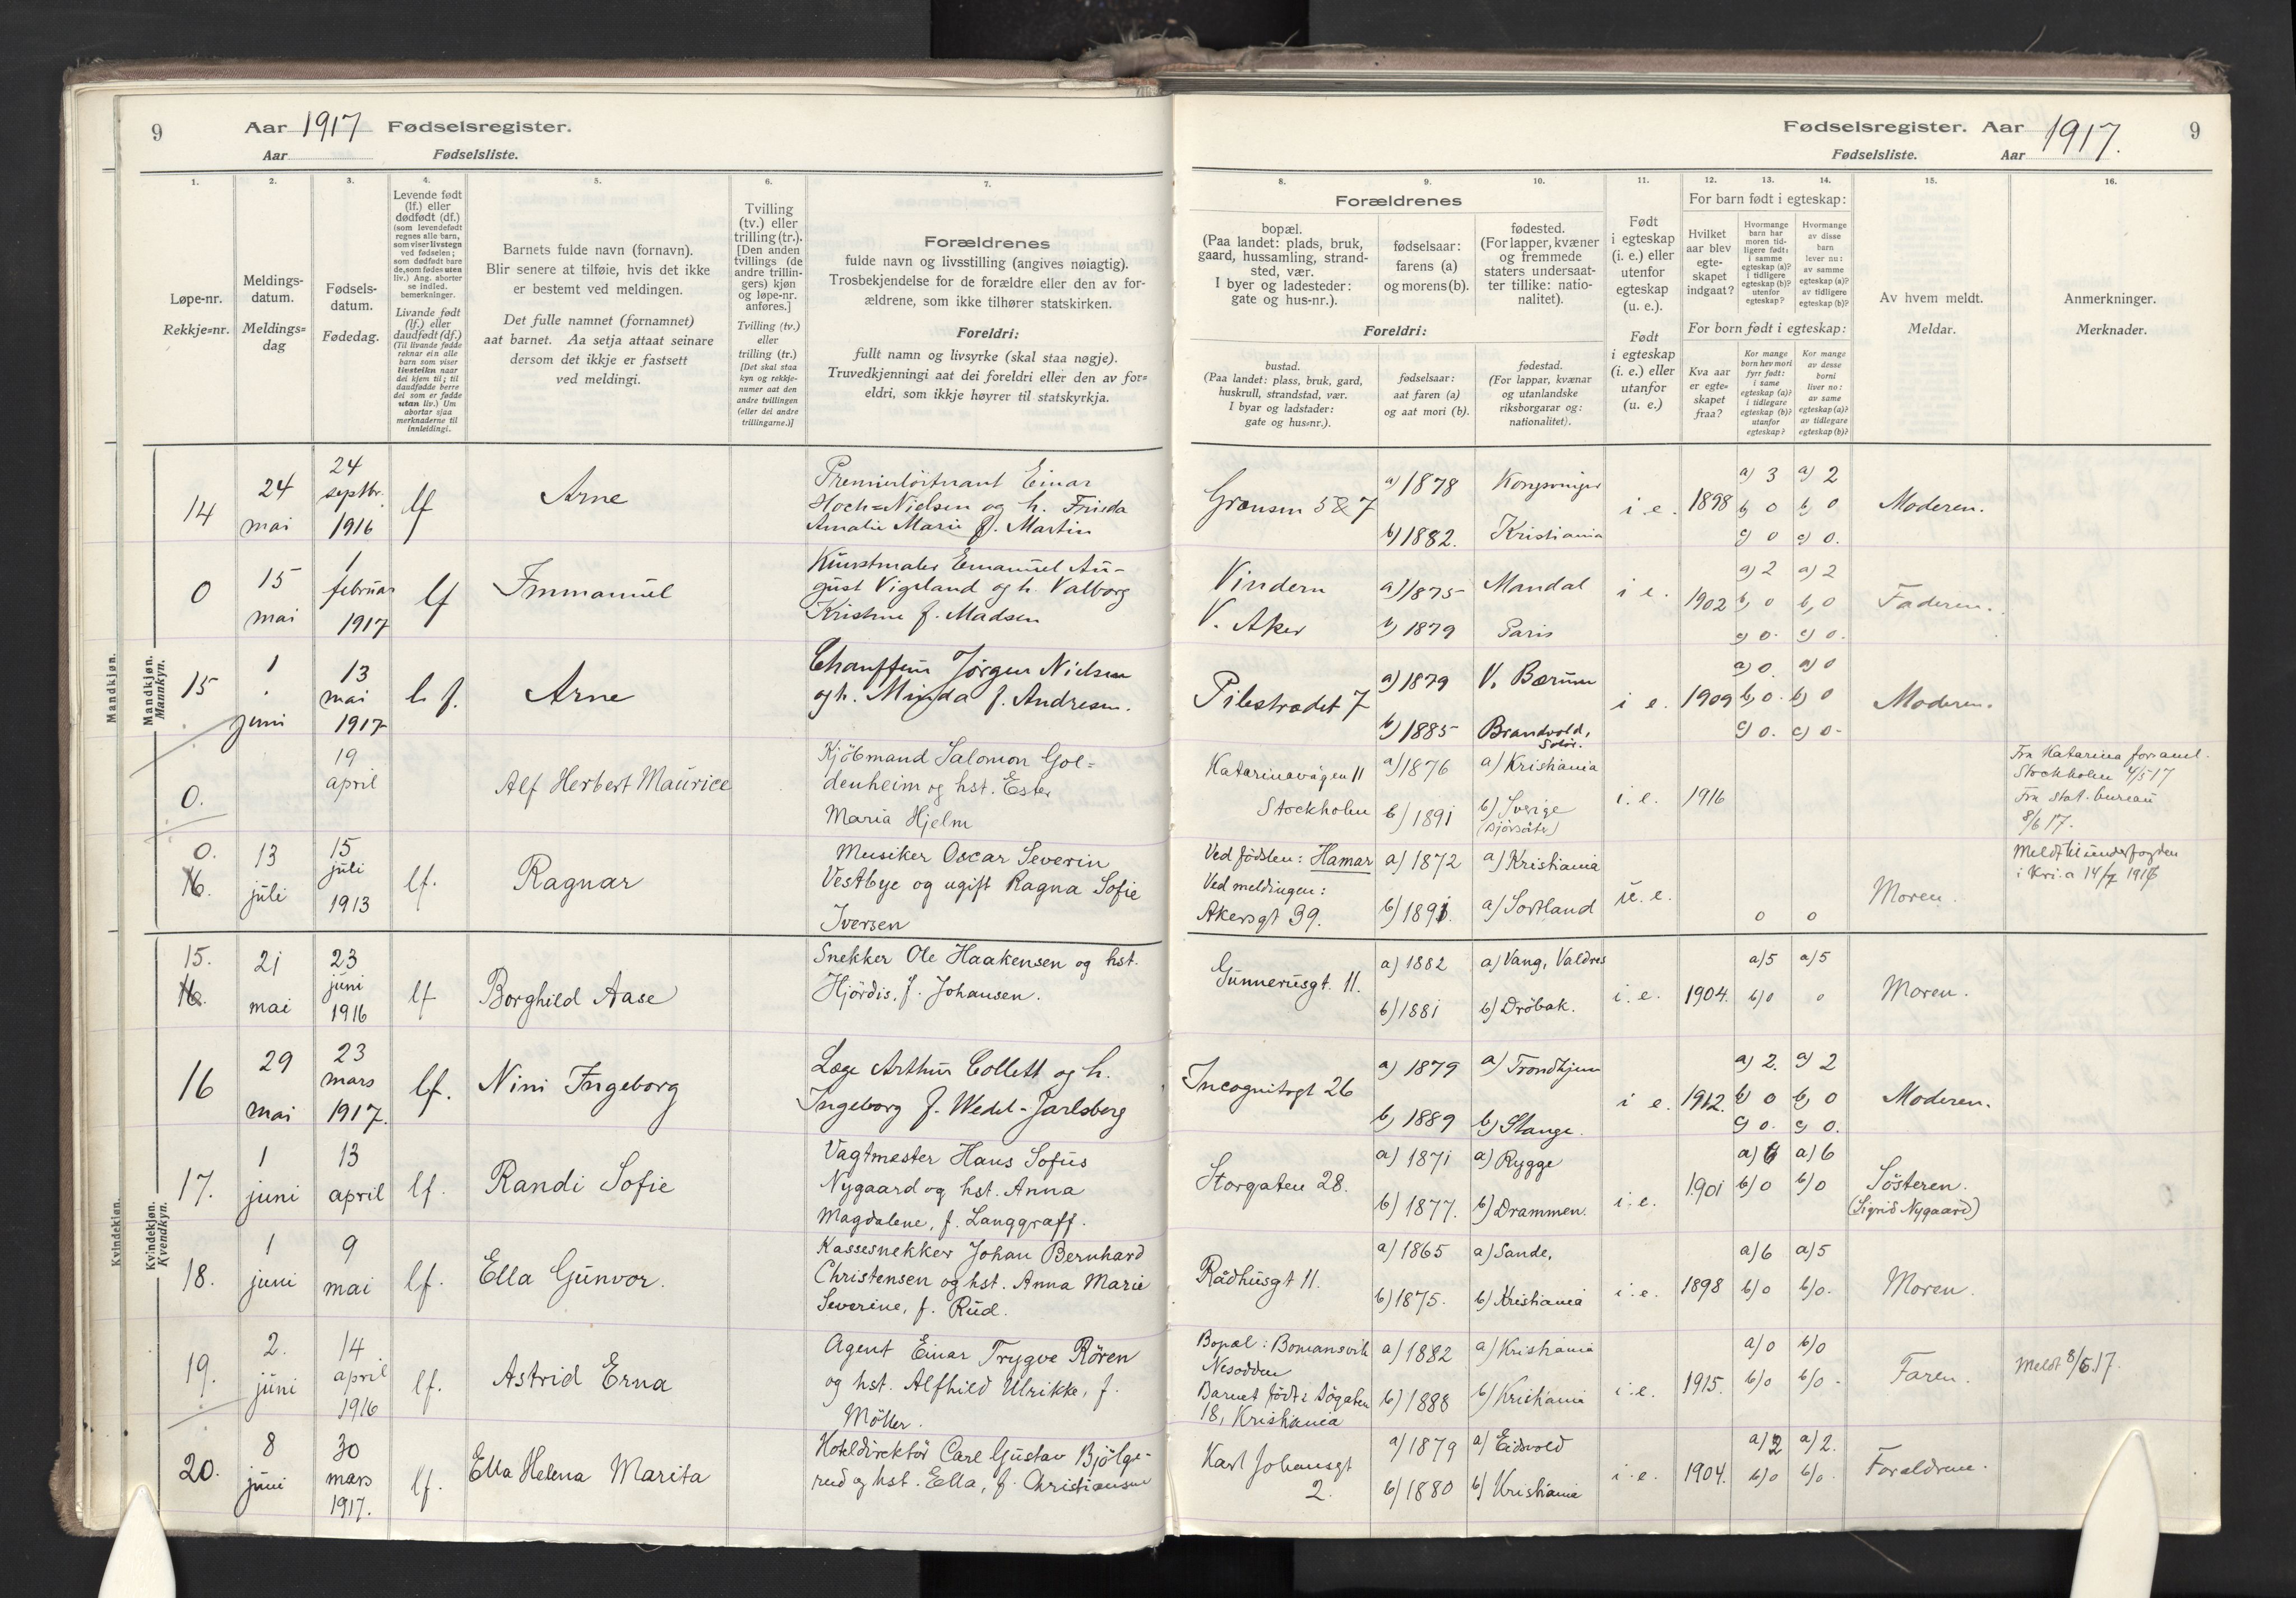 9 Aar 1917 Fødselsregister.
Aar Fødselsliste.
1. 2. 3. 4. 5. 6. 7.
Løpe-nr.
Rekkje=nr.
Meldings-
datum.
Meldings=
dag
Fødsels-
datum.
Fødedag.
Levende født
(lf.) eller
dødfødt (df.)
(som levendefødt
regnes alle barn,
som viser livstegn
ved fødselen;
som dødfødt bare
de, som fødes uten
liv.) Ang. aborter
se indled.
bemerkninger.
Livande født
(lf.) eller
daudfødt (df.)
(Til livande fødde
reknar ein alle
barn som viser
livsteikn naar
dei kjem til; til
daudfødde berre
dei som er fødde
utan liv.) Um
abortar sjaa
merknaderne til
innleidingi.
Barnets fulde navn (fornavn).
Blir senere at tilføie, hvis det ikke
er bestemt ved meldingen.
Det fulle namnet (fornamnet)
aat barnet. Aa setja attaat seinare
dersom det ikkje er fastsett
ved meldingi.
Tvilling
(tv.) eller
trilling (tr.).
[Den anden
tvillings (de
andre trillin-
gers) kjøn
og løpe-nr.
anføres.]
Tvilling (tv.)
eller
trilling (tr.)
[Det skal staa
kyn og rekkje-
numer aat den
andre tvillingen
(eller dei andre
trillingarne.)]
Forældrenes
fulde navn og livsstilling (angives nøiagtig).
Trosbekjendelse for de forældre eller den av for-
ældrene, som ikke tilhører statskirken.
Foreldri:
fullt namn og livsyrke (skal staa nøgje).
Truvedkjenningi aat dei foreldri eller den av for=
eldri, som ikkje høyrer til statskyrkja.
Mandkjøn.
Mandkjøn.
Mannkyn.
Kvindekjøn.
Kvindekjøn.
Kvendkyn.
14
24
mai
24
septbr.
1916
lf
Arne
Premierløitnant Einar
Hoch=Nielsen og h. Frieda
Amalie Marie f. Martin
0
15
mai
1
februar
1917
lf
Immanuel
Kunstmaler Emanuel Au-
gust Vigeland og h. Valborg
Kristine f. Madsen
15
1
juni
13
mai
1917
l f.
Arne
Chauffeur Jørgen Nielsen
og h. Minda f. Andresen.
0.
19
april
Alf Herbert Maurice
Kjöbmand Salomon Gol=
denheim og hst. Ester
Maria Hjelm
0.
16.
13
juli
15
juli
1913
lf.
Ragnar
Musiker Oscar Severin
Vestbye og ugift Ragna Sofie
Iversen
15.
16.
21
mai
23
juni
1916
lf
Borghild Aase
Snekker Ole Haakensen og hst.
Hjördis, f. Johansen.
16
29
mai
23
mars
1917.
lf.
Nini Ingeborg
Læge Arthur Collett og h.
Ingeborg f. Wedel-Jarlsberg
17.
1
juni
13
april
lf.
Randi Sofie
Vagtmester Hans Sofus
Nygaard og hst. Anna
Magdalene, f. Langgraff.
18.
1
juni
9
mai
lf.
Ella Gunvor.
Kassesnekker Johan Bernhard
Christensen og hst. Anna Marie
Severine, f. Rud.
19.
2.
juni
14
april
1916
lf.
Astrid Erna
Agent Einar Trygve Rören
og hst. Alfhild Ulrikke, f.
Möller.
20.
8
juni
30
mars
1917.
lf.
Ella Helena Marita
Hoteldirektör Carl Gustav Bjölge-
rud og hst. Ella, f. Christiansen
Fødselsregister. Aar 1917. 9
Fødselsliste. Aar
8. 9. 10. 11. 12. 13. 14. 15. 16.
Forældrenes
bopæl.
(Paa landet: plads, bruk,
gaard, hussamling, strand-
sted, vær.
I byer og ladesteder:
gate og hus-nr.).
fødselsaar:
farens (a)
og morens (b).
fødested.
(For lapper, kvæner
og fremmede
staters undersaat-
ter tillike: natio-
nalitet).
Foreldri:
bustad.
(Paa landet: plass, bruk, gard,
huskrull, strandstad, vær.
I byar og ladstader:
gate og hus=nr.).
fødselsaar:
aat faren (a)
og aat mori (b).
fødestad.
(For lappar, kvænar
og utanlandske
riksborgarar og:
nationalitet).
Født
i egteskap
(i. e.) eller
utenfor
egteskap
(u. e.).
Født
i egteskap
(i. e.) eller
utanfor
(u. e.)
For barn født i egteskap:
Hvilket
aar blev
egte-
skapet
indgaat?
Hvormange
barn har
moren tid-
ligere født:
i samme
egteskap (a)?
i tidligere
egteskap (b)?
utenfor
egteskap?
Hvormange
av disse
barn
lever nu:
av samme
egteskap (a)?
av tidligere
egteskap (b)?
For born født i egteskap:
Kva aar
er egte=
skapet
fraa?
Kor mange
born hev mori
fyrr født:
i same
egteskap (a)?
i tidlegare
egteskap (b)?
utanfor
egteskap?
Kor mange
av desse
borni
liver no:
av same
egteskap (a)?
av tidlegare
egteskap (b)?
Av hvem meldt.
Meldar.
Anmerkninger.
Merknader.
Grænsen 5 & 7
a) 1878
b) 1882.
Kongsvinger
Kristiania
i e.
1898
a) 3
b) 0
c) 0
a) 2
b) 0
c) 0.
Moderen.
Vindern
V. Aker
a) 1875
b) 1879
Mandal
Paris
i e.
1902
a) 2
b) 0
c) 0.
a) 2
b) 0
c) 0.
Faderen.
Pilestrædet 7
a) 1879
b) 1885
V. Bærum
Brandvold,
Solør.
i e.
1909
a) 0.
b) 0.
c) 0.
a) 0
b) 0
c) 0-
Moderen.
Katarinavägen 11
Stockholm
a) 1876
b) 1891
a) Kristiania
b) Sverige
i. e.
1916
Fra Katarina forsaml.
Stockholm 4/5 17
Fra stat. bureau
8/6 17.
Ved födslen: Hamar
Ved meldingen:
Akersgt 39.
a) 1872
b) 1891.
a) Kristiania
a) Sortland
u. e.
0
0
Moren.
Meldt til underfogden
i Kri.a 14/7 1917
Gunnerusgt. 11.
a) 1882
b) 1881
a) Vang, Valdres
b) Dröbak.
i. e.
1904.
a) 5
b) 0
a) 5
0
Moren.
Incognitogt 26
a) 1879
b) 1889
a) Trondhjem
b) Stange.
i e.
1912.
a) 2.
b) 0
c) 0.
a) 2
b) 0
c) 0.
Moderen.
Storgaten 28.
a) 1871
b) 1877.
a) Rygge
b) Drammen.
i. e.
1901
a) 6
b) 0
a) 6
b) 0
Sösteren.
(Sigrid Nygaard)
Rådhusgt 11.
a) 1865
b) 1875.
a) Sande,
b) Kristiania
i. e.
1898
a) 6
b) 0
a) 5
b) 0.
Moren.
Bopæl: Bomansvik
Nesodden
Barnet födt:
18, Kristiania
a) 1882
b) 1888
a) Kristiania
b) Kristiania
i. e.
1915.
a) 0
b) 0
b) 0
b) 0-
Faren.
Meldt 8/6.17.
Karl Johansgt
2.
a) 1879
b) 1880
a) Eidsvold
b) Kristiania
i. e.
1904.
a) 2
b) 0
a) 2.
b) 0.
Forældrene.